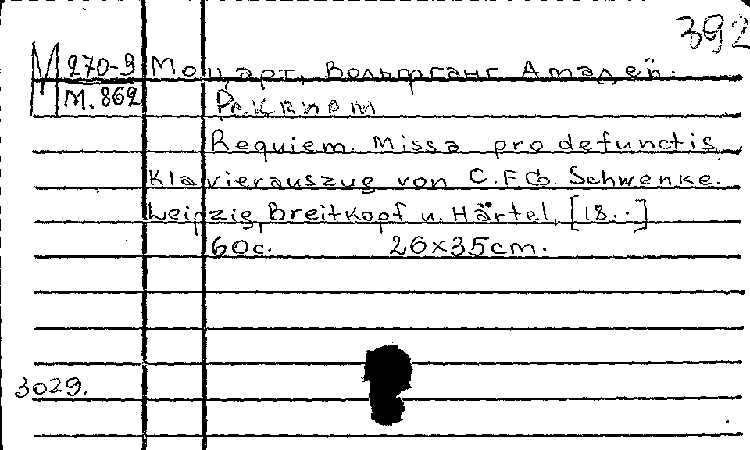 392
М 270-9 Моцарт, Вольфганг Амадей.
М.862 Реквием
Requiem. Missa pro defunctis
Klavierauszug von C.F.G. Schwenke.
Leipzig, Breitkopf u. Härtel, [18..]
60с. 26x35cm.
3029.